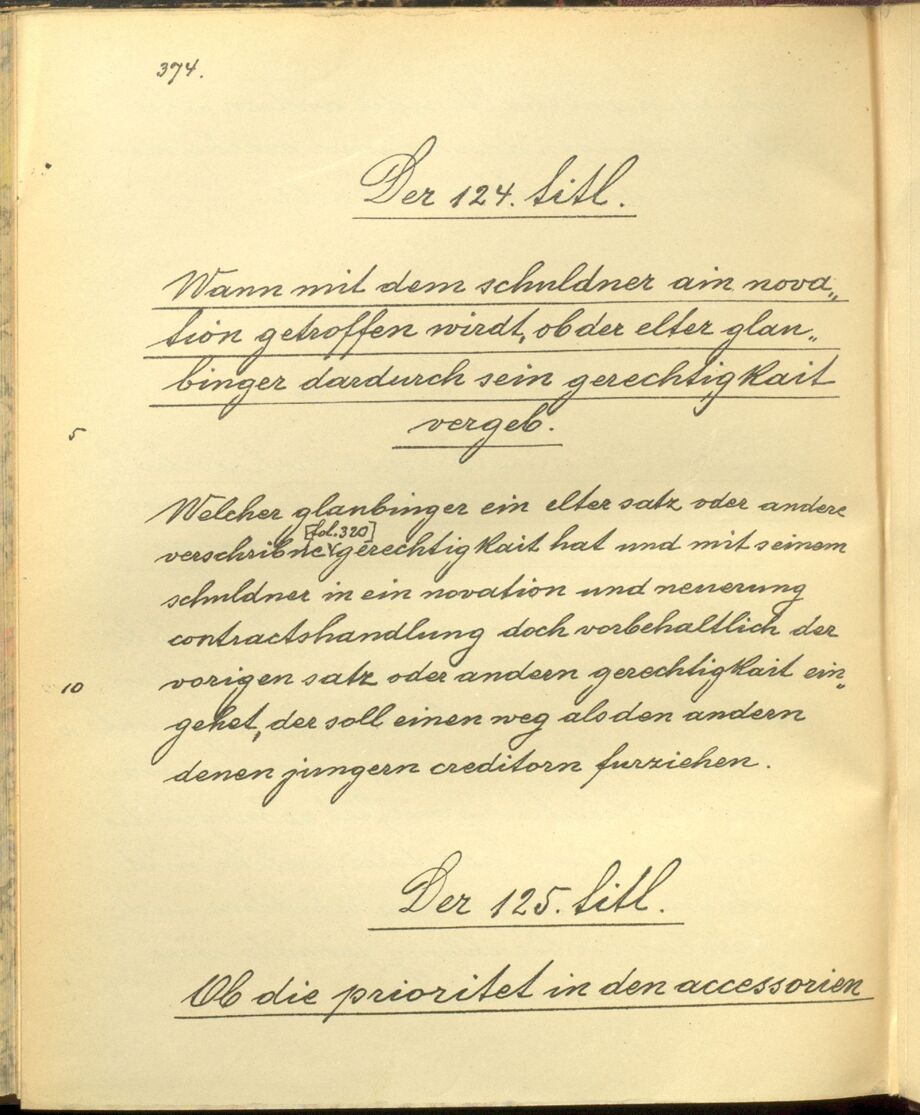 374.
Der 124. titl.
Wann mit dem schuldner ain nova„
tion getroffen wirdt, ob der elter glau„
binger dardurch sein gerechtigkait
5 vergeb.
Welcher glaubinger ein elter satz oder andere
verschribne [fol. 320] gerechtigkait hat und mit seinem
schuldner in ein novation und neuerung
contractshandlung doch vorbehaltlich der
10 vorigen satz oder andern gerechtigkait ein„
gehet, der soll einen weg als den andern
denen jungern creditorn furziehen.
Der 125. titl.
Ob die prioritet in den accessorien